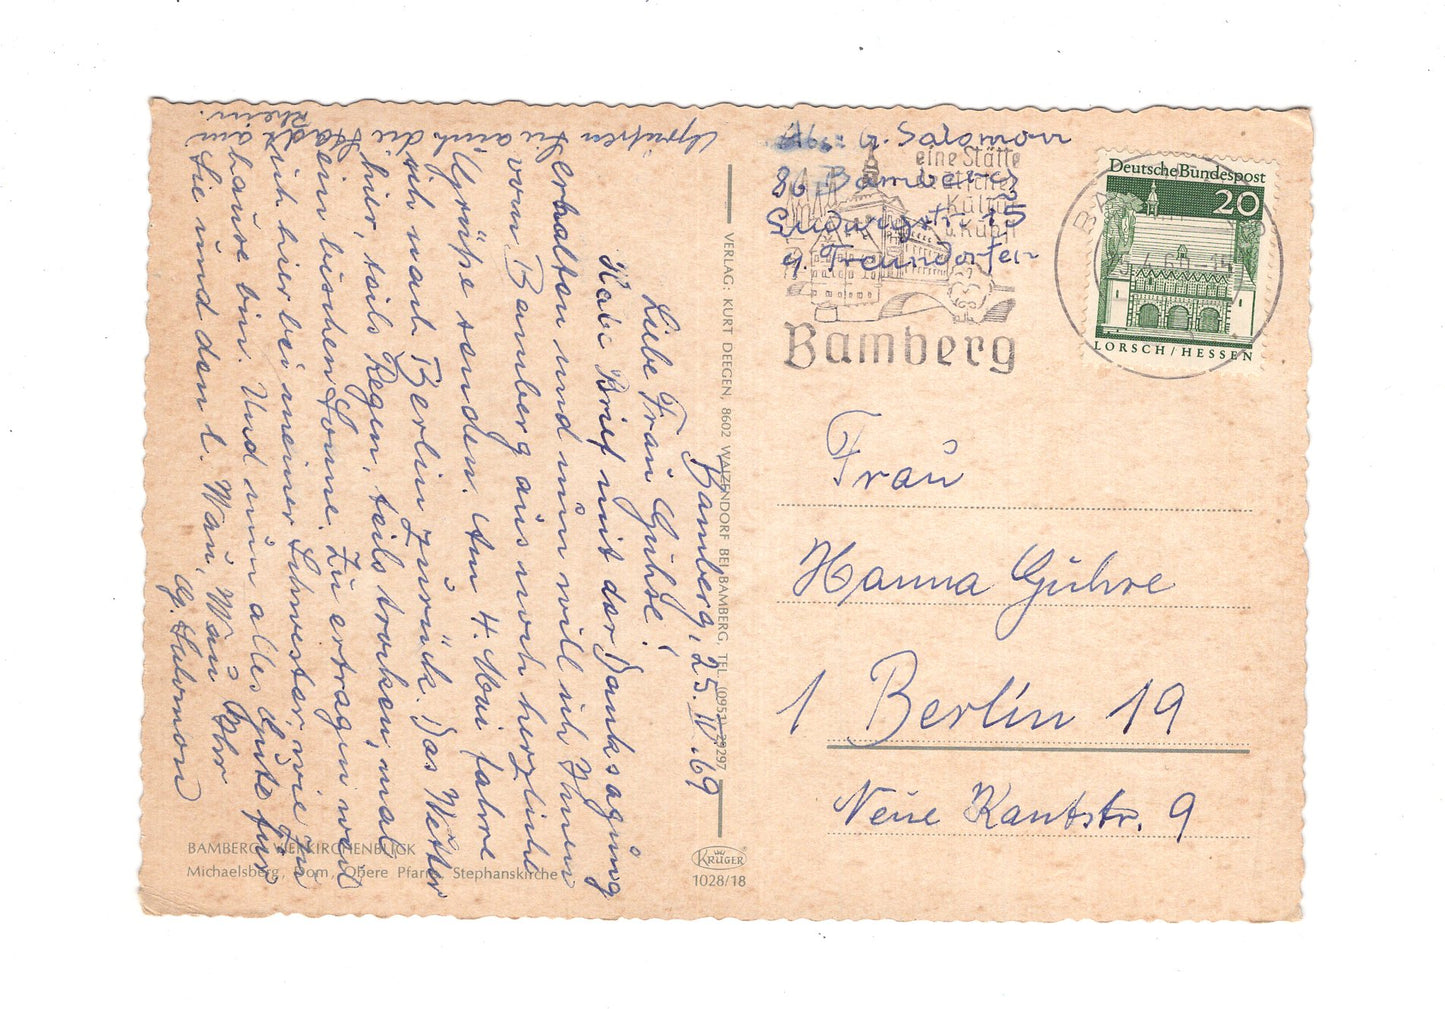 Bamberg, 25.IV.69
Liebe Frau Gühre!
Habe Brief mit der Danksagung
erhalten und nun will ich Ihnen
vom Bamberg aus noch herzliche
Grüße senden. Am 4. Mai fahre
ich nach Berlin zurück. Das Wetter
hier, teils Regen, teils troken, mal
ein bischen Sonne. Zu ertragen weil
ich hier bei meiner Schwester, wie zu
hause bin. Und nun alles Gute für
Sie und den l. Ihr
G. Salomon
Grüßen Sie auch die
am Rhein.
Abs: G. Salomon
86 Bamberg
Ludwigstr. 15
b. Freundorfer
eine Stätte
Kultur
u. Kunst
Bamberg
Deutsche Bundespost
20
LORSCH/HESSEN
Frau
Hanna Gühre
1 Berlin 19
Neue Kantstr. 9
VERLAG: KURT DEEGEN, 8602 WAIZENDORF BEI BAMBERG, TEL. (0951) 29297
BAMBERG, VIERKIRCHENBLICK
Michaelsberg, Dom, Obere Pfarre, Stephanskirche
KRÜGER
1028/18